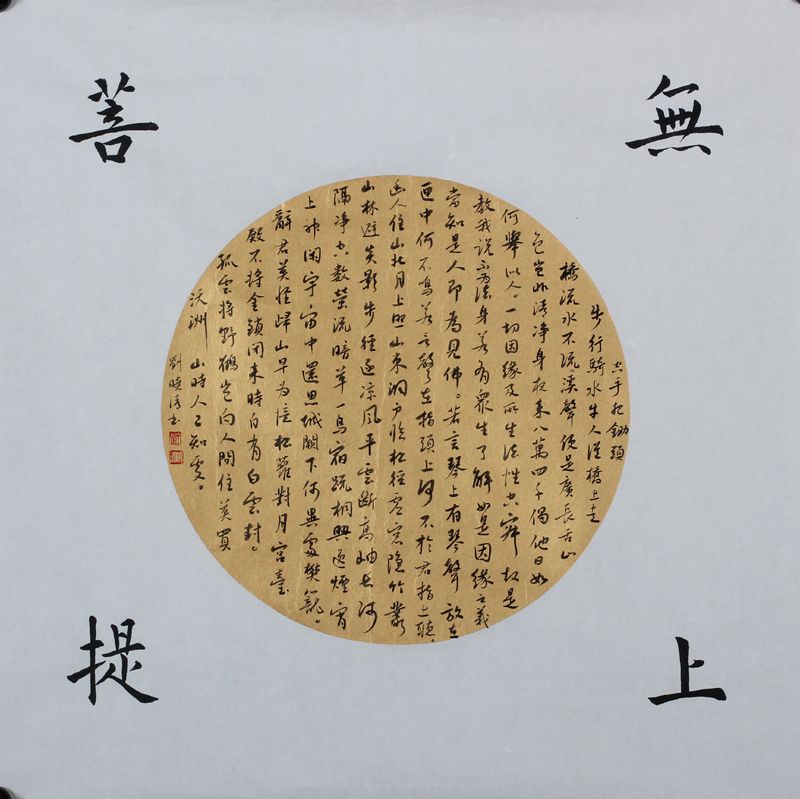 無
上
菩
提
空手把鋤頭
步行騎水牛人從橋上走
橋流水不流溪聲便是廣長舌山
色豈非清淨身夜來八萬四千偈他日如
何舉似人。一切因緣及所生法性空寂故是
教我說法身若有眾生了解如是因緣之義
當知是人即為見佛。若言琴上有琴聲放在
匣中何不鳴若言聲在指頭上何不於君指上聽。
幽人住山北月上照山東洞戶臨松徑虛窗隱竹叢
山林避炎影步徑逐涼風平雲斷高岫長河
隔淨空數螢流暗草一鳥宿疏桐興逐煙霄
上神閑宇宙中還思城闕下何異處樊籠。
辭君莫怪歸山早為憶松蘿對月宮臺
殿不將金鎖閉來時自有白雲封。
孤雲將野鶴豈向人間住莫買
沃洲山時人已知處。
劉曉書